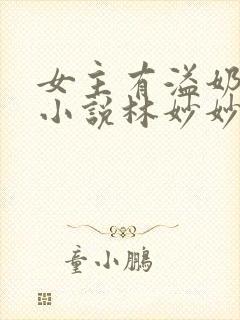 女主有溢奶
小说林妙妙
童小鹏